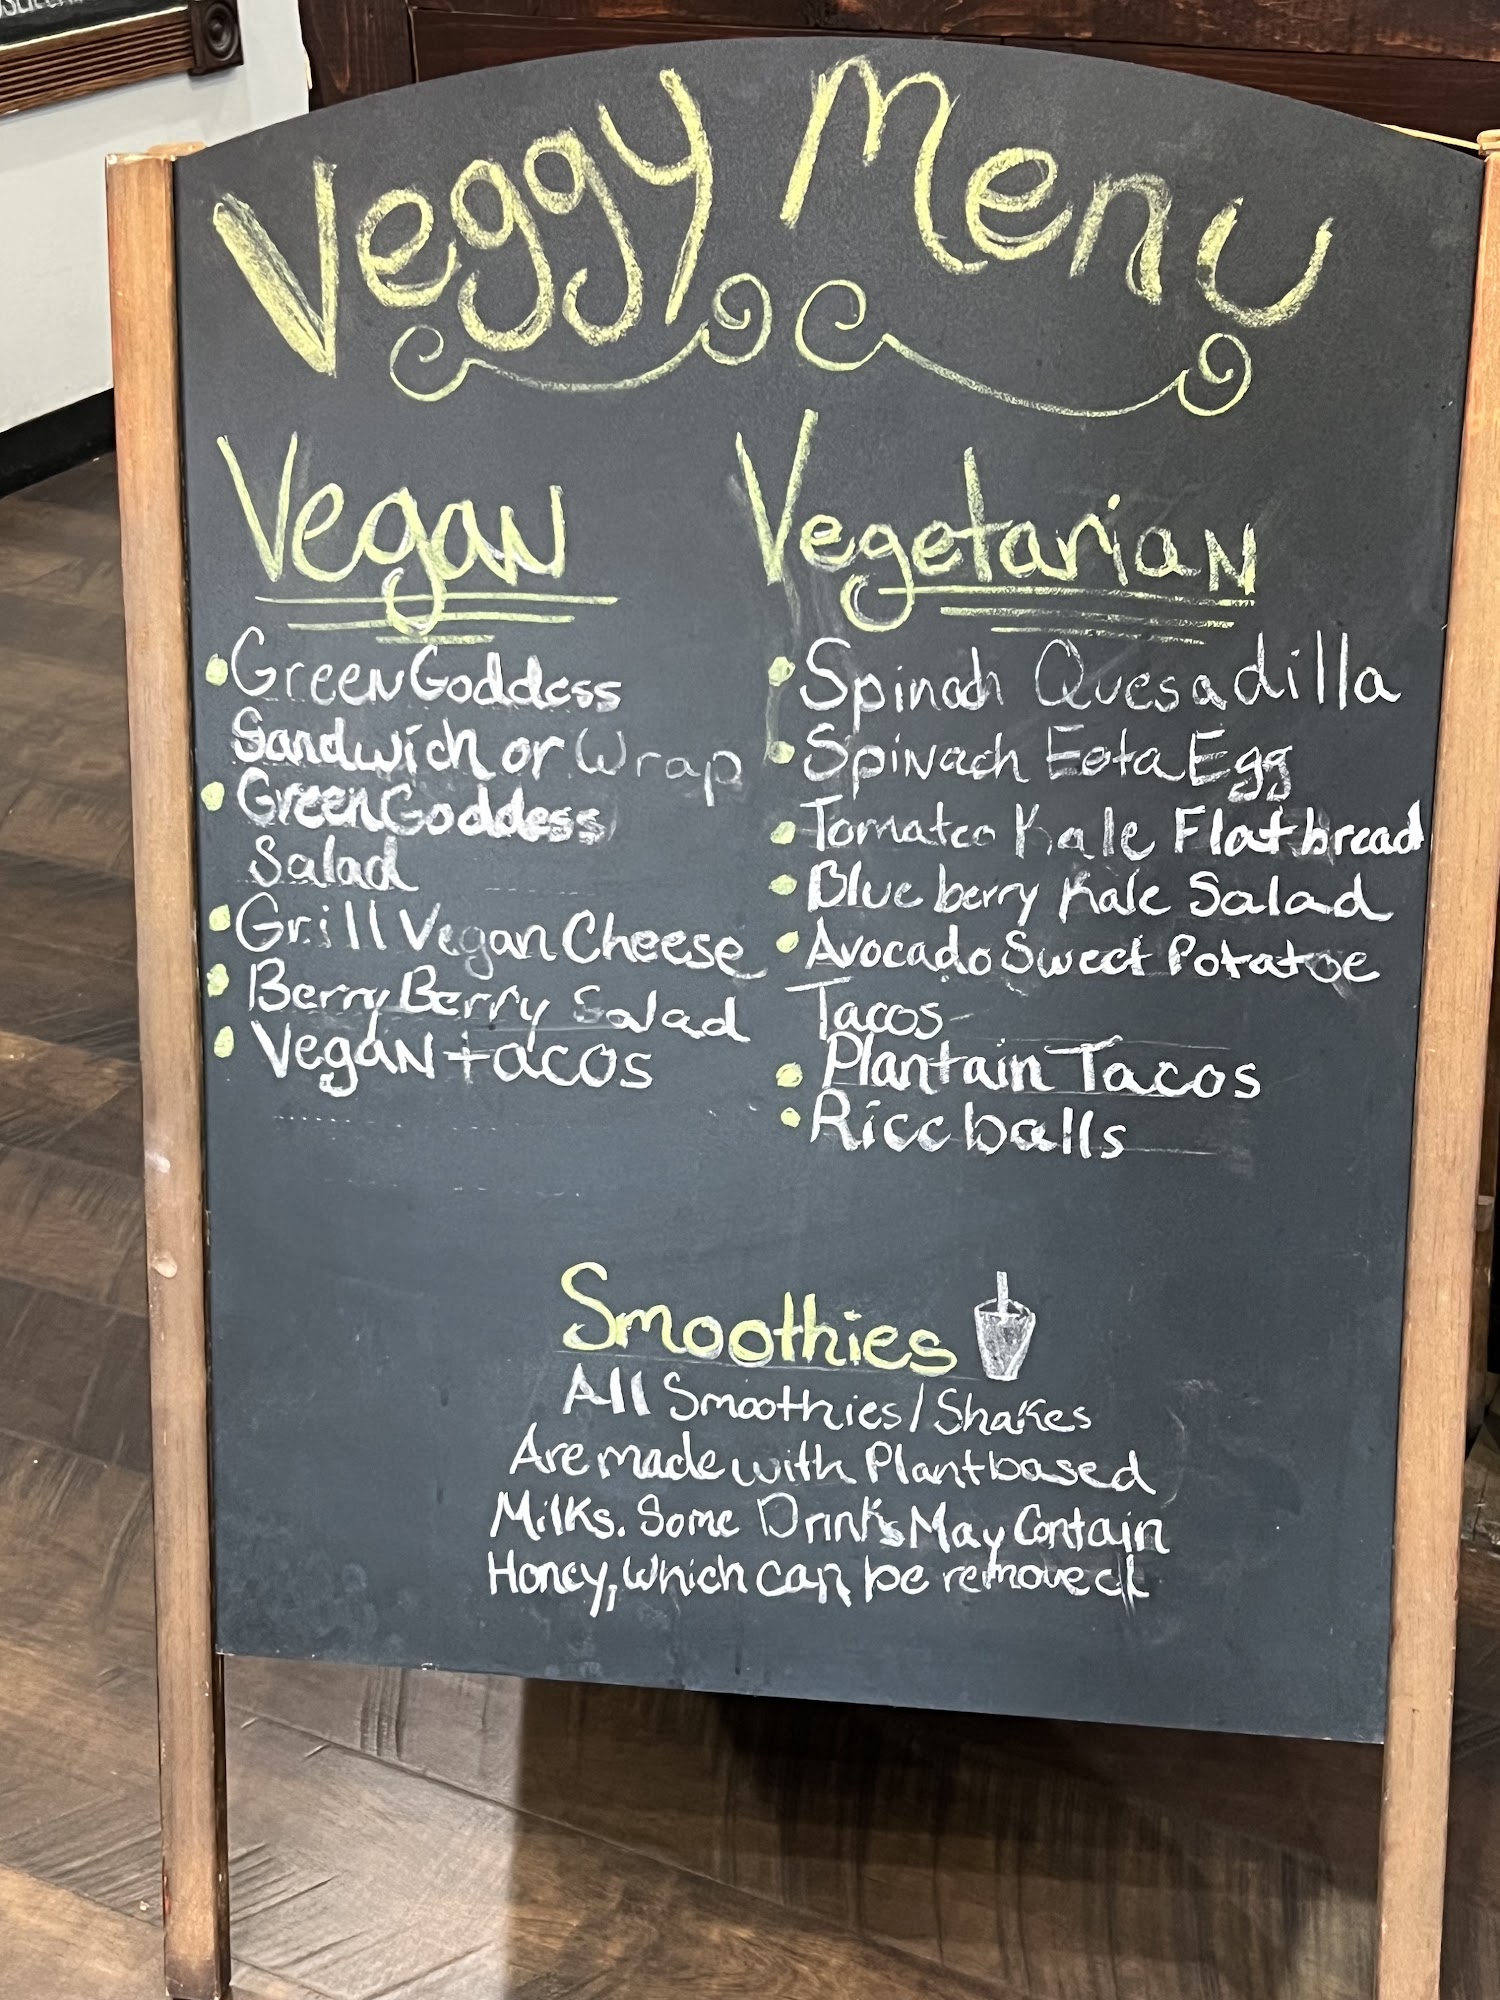 Veggy Menu
Vegan
• Green Goddess
Sandwich or Wrap
• Green Goddess
Salad
• Grill Vegan Cheese
• Berry Berry Salad
• Vegan tacos
Vegetarian
• Spinach Quesadilla
• Spinach Feta Egg
• Tomatoe Kale Flatbread
• Blueberry Kale Salad
• Avocado Sweet Potatoe
Tacos
• Plantain Tacos
• Rice balls
Smoothies
All Smoothies/Shakes
Are made with Plant based
Milks. Some Drinks May Contain
Honey, Which can be removed